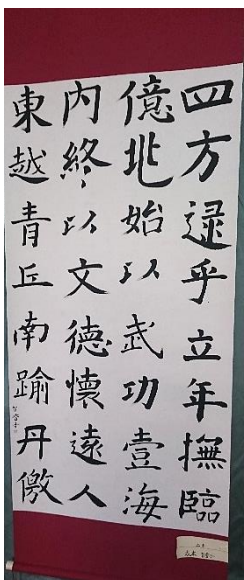 四方逯乎立年撫臨
億兆始以武功壹海
内終以文德懷遠人
東越青丘南踰丹儌